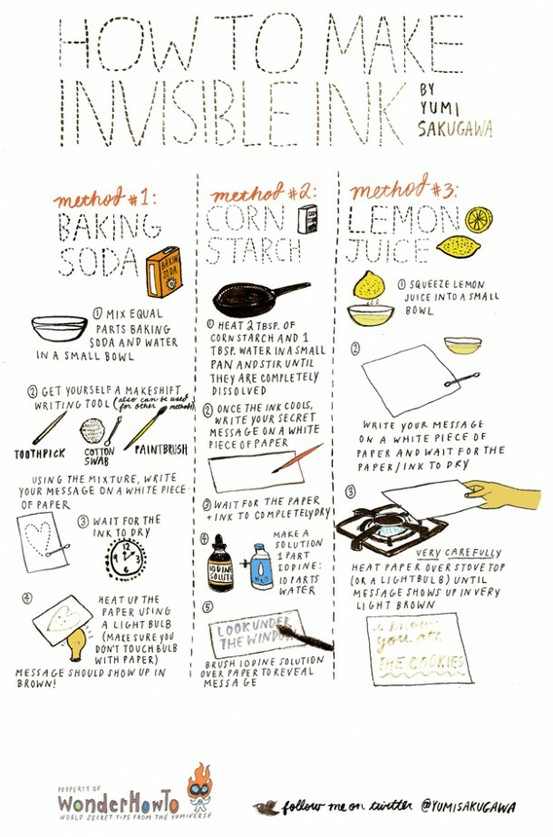 HOW TO MAKE
INVISIBLE INK
BY
YUMI
SAKUGAWA
method #1:
BAKING
SODA
BAKING
SODA
① MIX EQUAL
PARTS BAKING
SODA AND WATER
IN A SMALL BOWL
② GET YOURSELF A MAKESHIFT
WRITING TOOL (also can be used
for other methods)
TOOTHPICK
COTTON
SWAB
PAINTBRUSH
USING THE MIXTURE, WRITE
YOUR MESSAGE ON A WHITE PIECE
OF PAPER
③ WAIT FOR THE
INK TO DRY
④ HEAT UP THE
PAPER USING
A LIGHT BULB
(MAKE SURE YOU
DON'T TOUCH BULB
WITH PAPER)
MESSAGE SHOULD SHOW UP IN
BROWN!
method #2:
CORN
STARCH
① HEAT 2 TBSP. OF
CORNSTARCH AND 1
TBSP. WATER IN A SMALL
PAN AND STIR UNTIL
THEY ARE COMPLETELY
DISSOLVED
② ONCE THE INK COOLS,
WRITE YOUR SECRET
MESSAGE ON A WHITE
PIECE OF PAPER
③ WAIT FOR THE PAPER
+ INK TO COMPLETELY DRY
④ MAKE A
SOLUTION
1 PART
IODINE:
10 PARTS
WATER
IODINE
+
H₂O
⑤
LOOK UNDER
THE WINDOW
BRUSH IODINE SOLUTION
OVER PAPER TO REVEAL
MESSAGE
method #3:
LEMON
JUICE
① SQUEEZE LEMON
JUICE INTO A SMALL
BOWL
②
WRITE YOUR MESSAGE
ON A WHITE PIECE OF
PAPER AND WAIT FOR THE
PAPER/INK TO DRY
③
VERY CAREFULLY
HEAT PAPER OVER STOVE TOP
(OR A LIGHTBULB) UNTIL
MESSAGE SHOWS UP IN VERY
LIGHT BROWN
you ate
THE COOKIES
PROPERTY OF
WonderHowTo
WORLD SECRET TIPS FROM THE YUMIVERSE
follow me on twitter @YUMISAKUGAWA